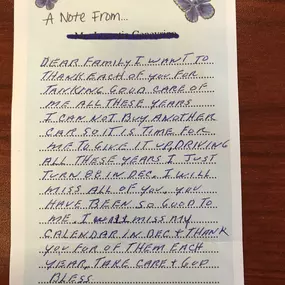 A Note From...
DEAR FAMILY I WANT TO
THANK EACH OF YOU FOR
TAKKING GOOD CARE OF
ME ALL THESE YEARS
I CAN NOT BUY ANOTHER
CAR SO IT IS TIME FOR
ME TO GIVE IT UP, DRIVING
ALL THESE YEARS I JUST
TURN 88 IN DEC. I WILL
MISS ALL OF YOU. YOU
HAVE BEEN SO GOOD TO
ME. I WILL MISS MY
CALENDAR IN DEC + THANK
YOU FOR OF THEM EACH
YEAR. TAKE CARE + GOD
BLESS